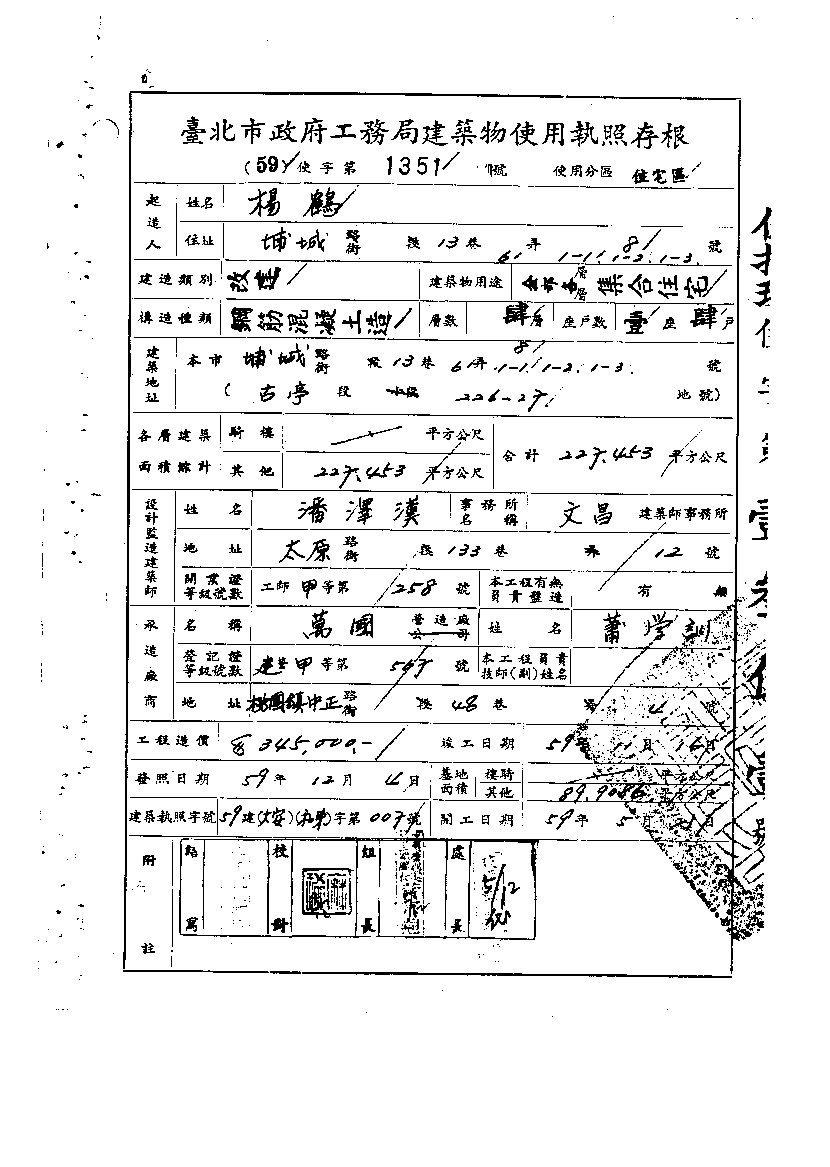 臺北市政府工務局建築物使用執照存根
(59)使字第 1351 號 使用分區 住宅區
起造人 姓名 楊鶴
住址 埔城 路街 段 13 巷 61 弄 8/1-1.1-2.1-3. 號
建造類別 改建 建築物用途 全部各層層 集合住宅
構造種類 鋼筋混凝土造 層數 肆層 座戶數 壹座 肆戶
建築地址 本市 埔城 路街 段 13 巷 61 弄 8/1-1/1-2.1-3. 號
(古亭 段 小段 226-27 地號)
各層建築面積總計 騎樓 平方公尺
其他 227.453 平方公尺 合計 227.453 平方公尺
設計監造建築師 姓名 潘澤漢 事務所名稱 文昌 建築師事務所
地址 太原 路街 段 133 巷 弄 12 號
開業證等級號數 工師 甲等第 258 號 本工程有無負責監造 有 無
承造廠商 名稱 萬國 營造廠公司 姓名 蕭學訓
登記證等級號數 建營甲等第 567 號 本工程負責技師(副)姓名
地址 桃園鎮中正 路街 段 48 巷 弄 4 號
工程造價 345,000.- 竣工日期 59年11月16日
發照日期 59年12月4日 基地面積 樓騎 平方公尺
其他 89.9086 平方公尺
建築執照字號 59建(大安)(和東)字第007號 開工日期 59年5月21日
附註 繕寫 校對 組長 處長 5/12